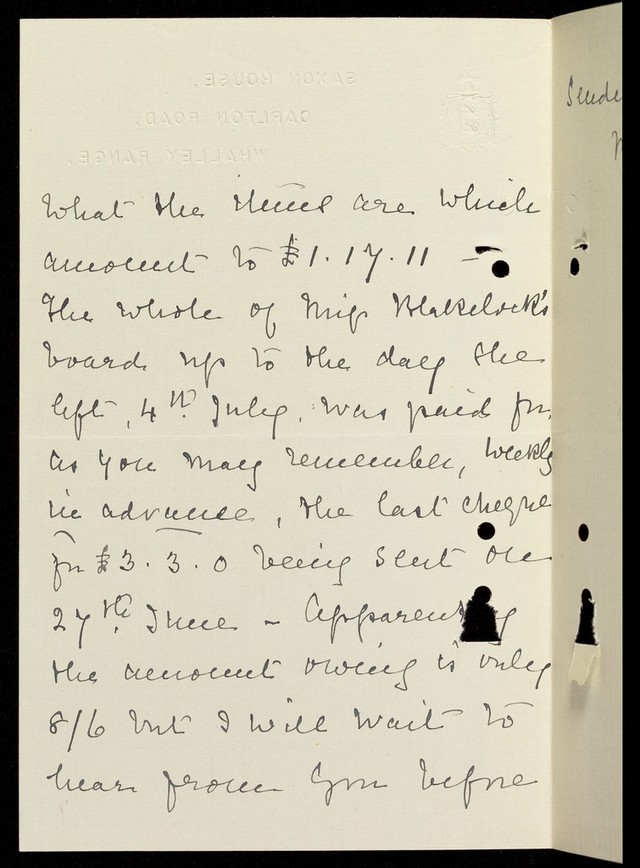 SAXON HOUSE,
CARLTON ROAD,
WHALLEY RANGE.
what the items are which
amount to £1.17.11 –
The whole of Miss Blakelock's
board up to the day she
left, 4th July, was paid for,
as you may remember, weekly
in advance, the last cheque
for £3.3.0 being sent on
27th June – Apparently
the amount owing is only
8/6 but I will wait to
hear from you before
Sende